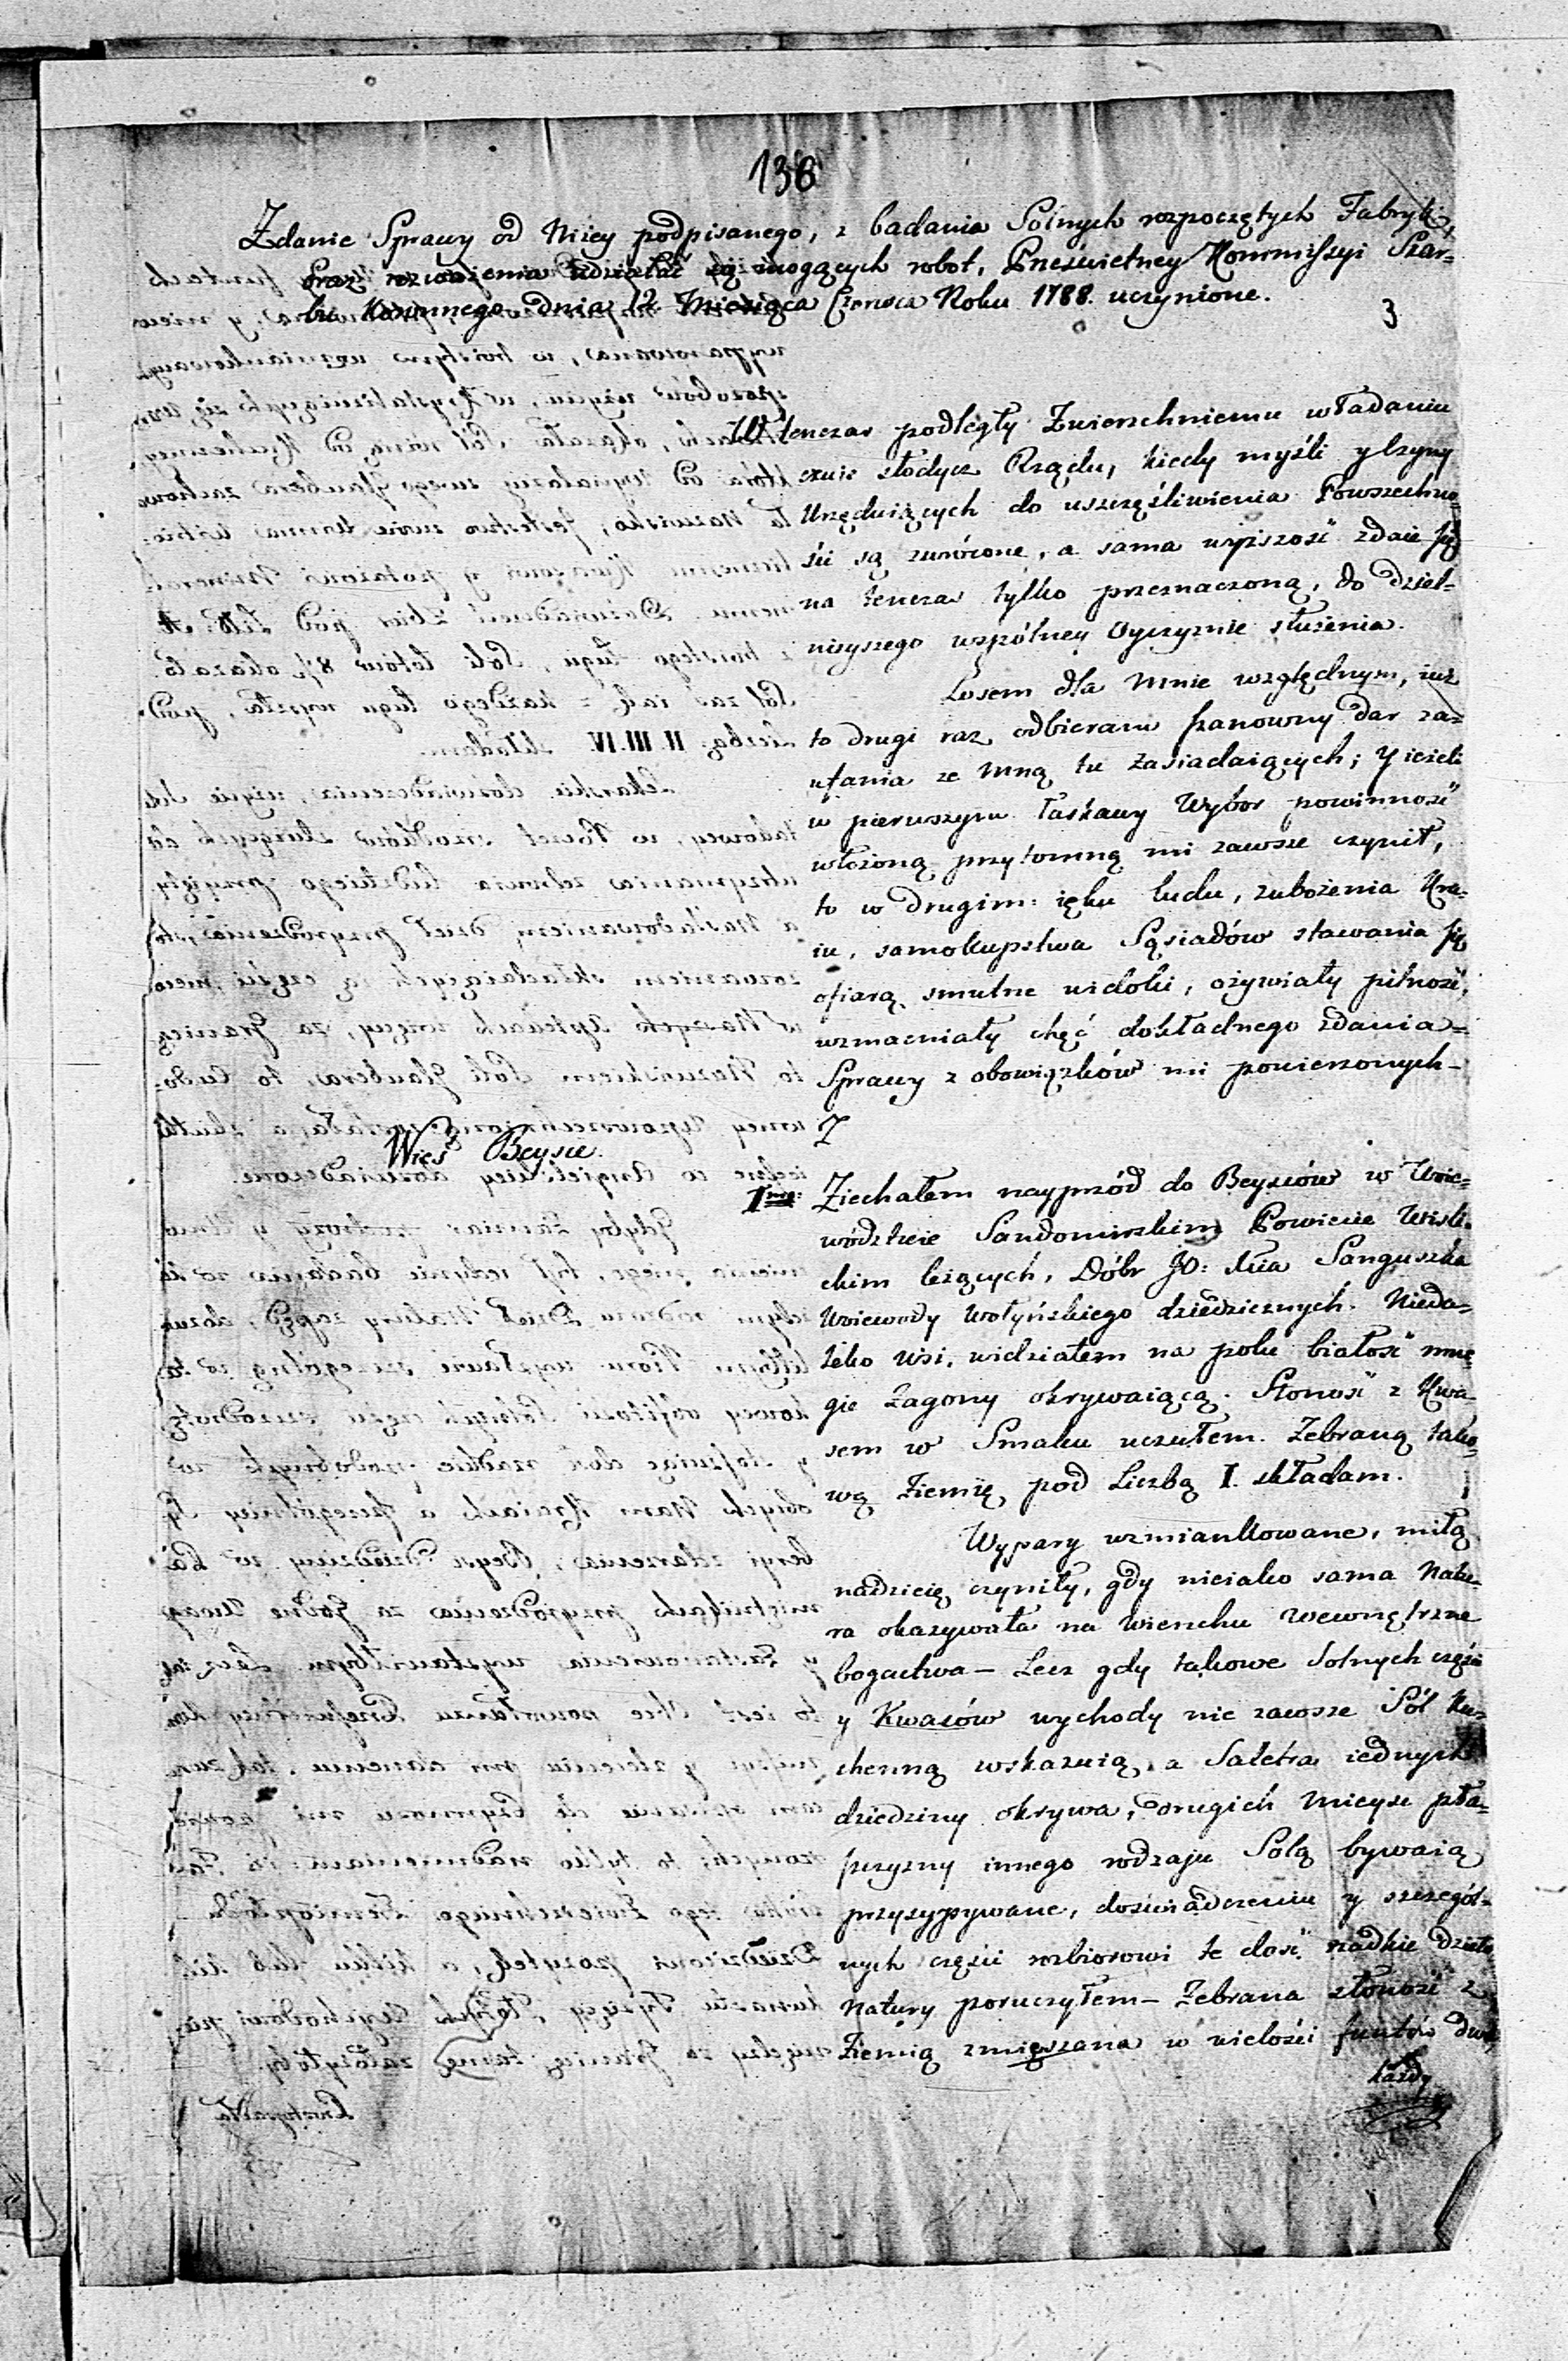 136
Zdanie Sprawy od Niżey podpisanego, z badania Solnych rozpoczętych Fabryk,
oraz rozważenia udziałać się mogących robot, Prześwietney Kommissyi Skar-
bu Koronnego dnia 12 Miesiąca Czerwca Roku 1788. uczynione.
3
W tenczas podległy Zwierzchniemu władaniu
czuie słodycz Rządu, kiedy myśli y czyny
Urzęduiących do uszczęśliwienia Powszechno-
ści są zwrócone, a sama wyższość zdaie się
na tencza tylko przeznaczoną, do dziel-
nieyszego wspólney Oyczyznie służenia.
Losem dla mnie względnym, iuż
to drugi raz odbieram szanowny dar za-
ufania ze mną tu zasiadaiących; y ieżeli
w pierwszym łaskawy Wybór powinność
włożoną przytomną mi zawsze czynił,
to w drugim: ięku ludu, zubożenia Kra-
iu, samokupstwa Sąsiadów stawania się
ofiarą smutne widoki, ożywiały pilność,
wzmacniały chęć dokładnego zdania-
Sprawy z obowiązków mi powierzonych-
Wieś Beysce.
Imo:
Ziechałem naypród do Beysców w Woie-
wództwie Sandomirskim Powiecie Wisli-
ckim leżących, Dóbr JO: Xcia Sanguszka
Woiewody Wołyńskiego dziedzicznych. Nieda-
leko wsi, widziałem na polu białość mno-
gie Zagony okrywaiącą. Słoność z Kwa-
sem w Smaku uczułem. Zebraną tako-
wą Ziemię pod Liczbą I. składam.
Wypary wzmiankowane, miłą
nadzieię czyniły, gdy nieiako sama Natu-
ra okazywała na wierzchu wewnętrzne
bogactwa - Lecz gdy takowe Solnych części
y Kwasów wychody nie zawsze Sól Ku-
chenną wskazuią, a Saletra iednych
dziedziny okrywa, drugich mieysc pła-
szczyzny innego rodzaju Solą bywaią
przysypywane, doświadczeniu y szczegól-
nych części rozbiorowi te dość rzadkie dzieło
Natury poruczyłem - Zebrana słoność z
Ziemią zmięszana w wielości funtów dwa
każdy